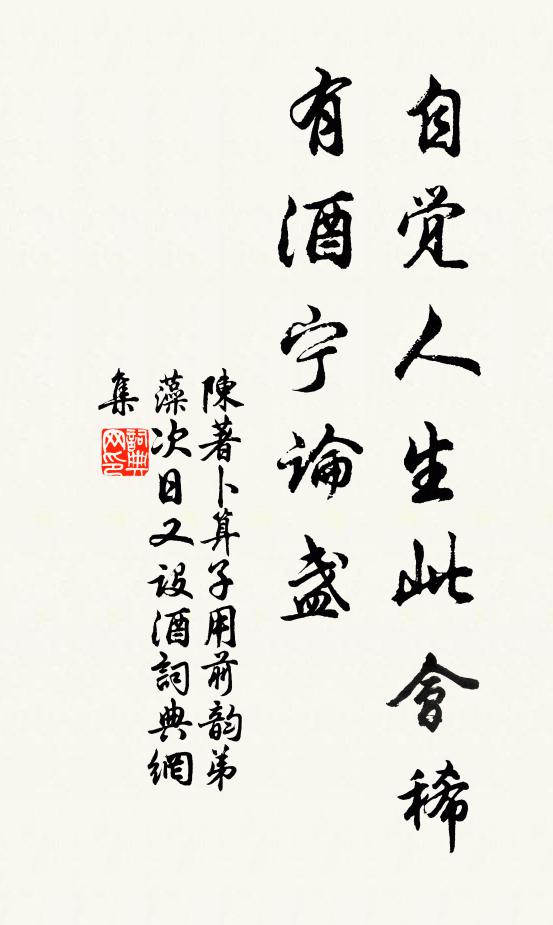 自觉人生此會稀
有酒宁論盏
陳著卜算子用前韵弟
藻次日又設酒詞典網
集
詞典网印